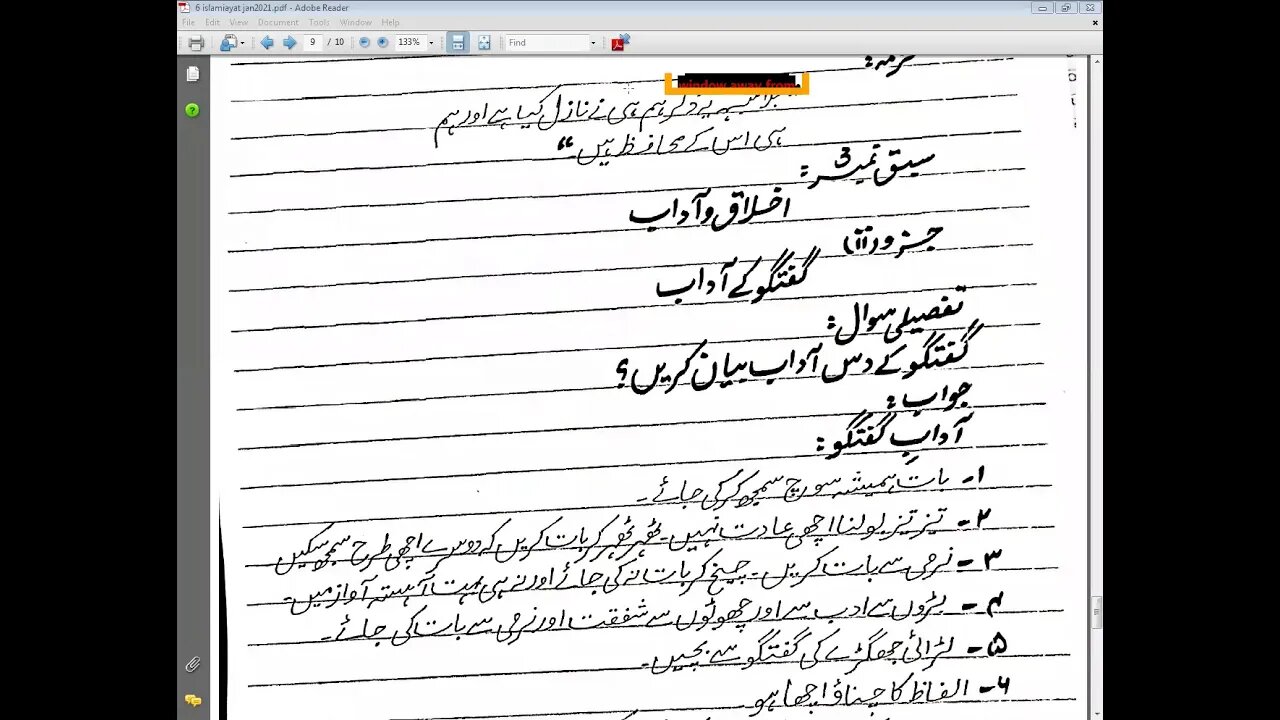 6 islamiayat jan2021.pdf - Adobe Reader
File Edit View Document Tools Window Help
9 / 10 133% Find
window away from
ذکر ہم ہی نے نازل کیا ہے اور ہم
ہی اس کے محافظ ہیں۔“
سبق نمبر 3:
اخلاق و آداب
جزو (ii)
گفتگو کے آداب
تفصیلی سوال:
گفتگو کے دس آداب بیان کریں؟
جواب:
آدابِ گفتگو:
۱۔ بات ہمیشہ سوچ سمجھ کر کی جائے۔
۲۔ تیز تیز بولنا اچھی عادت نہیں۔ ٹھہر ٹھہر کر بات کریں کہ دوسرے اچھی طرح سمجھ سکیں
۳۔ نرمی سے بات کریں۔ چیخ کر بات نہ کی جائے اور نہ ہی بہت آہستہ آواز میں۔
۴۔ بڑوں سے ادب سے اور چھوٹوں سے شفقت اور نرمی سے بات کی جائے۔
۵۔ لڑائی جھگڑے کی گفتگو سے بچیں۔
۶۔ الفاظ کا چناؤ اچھا ہو۔